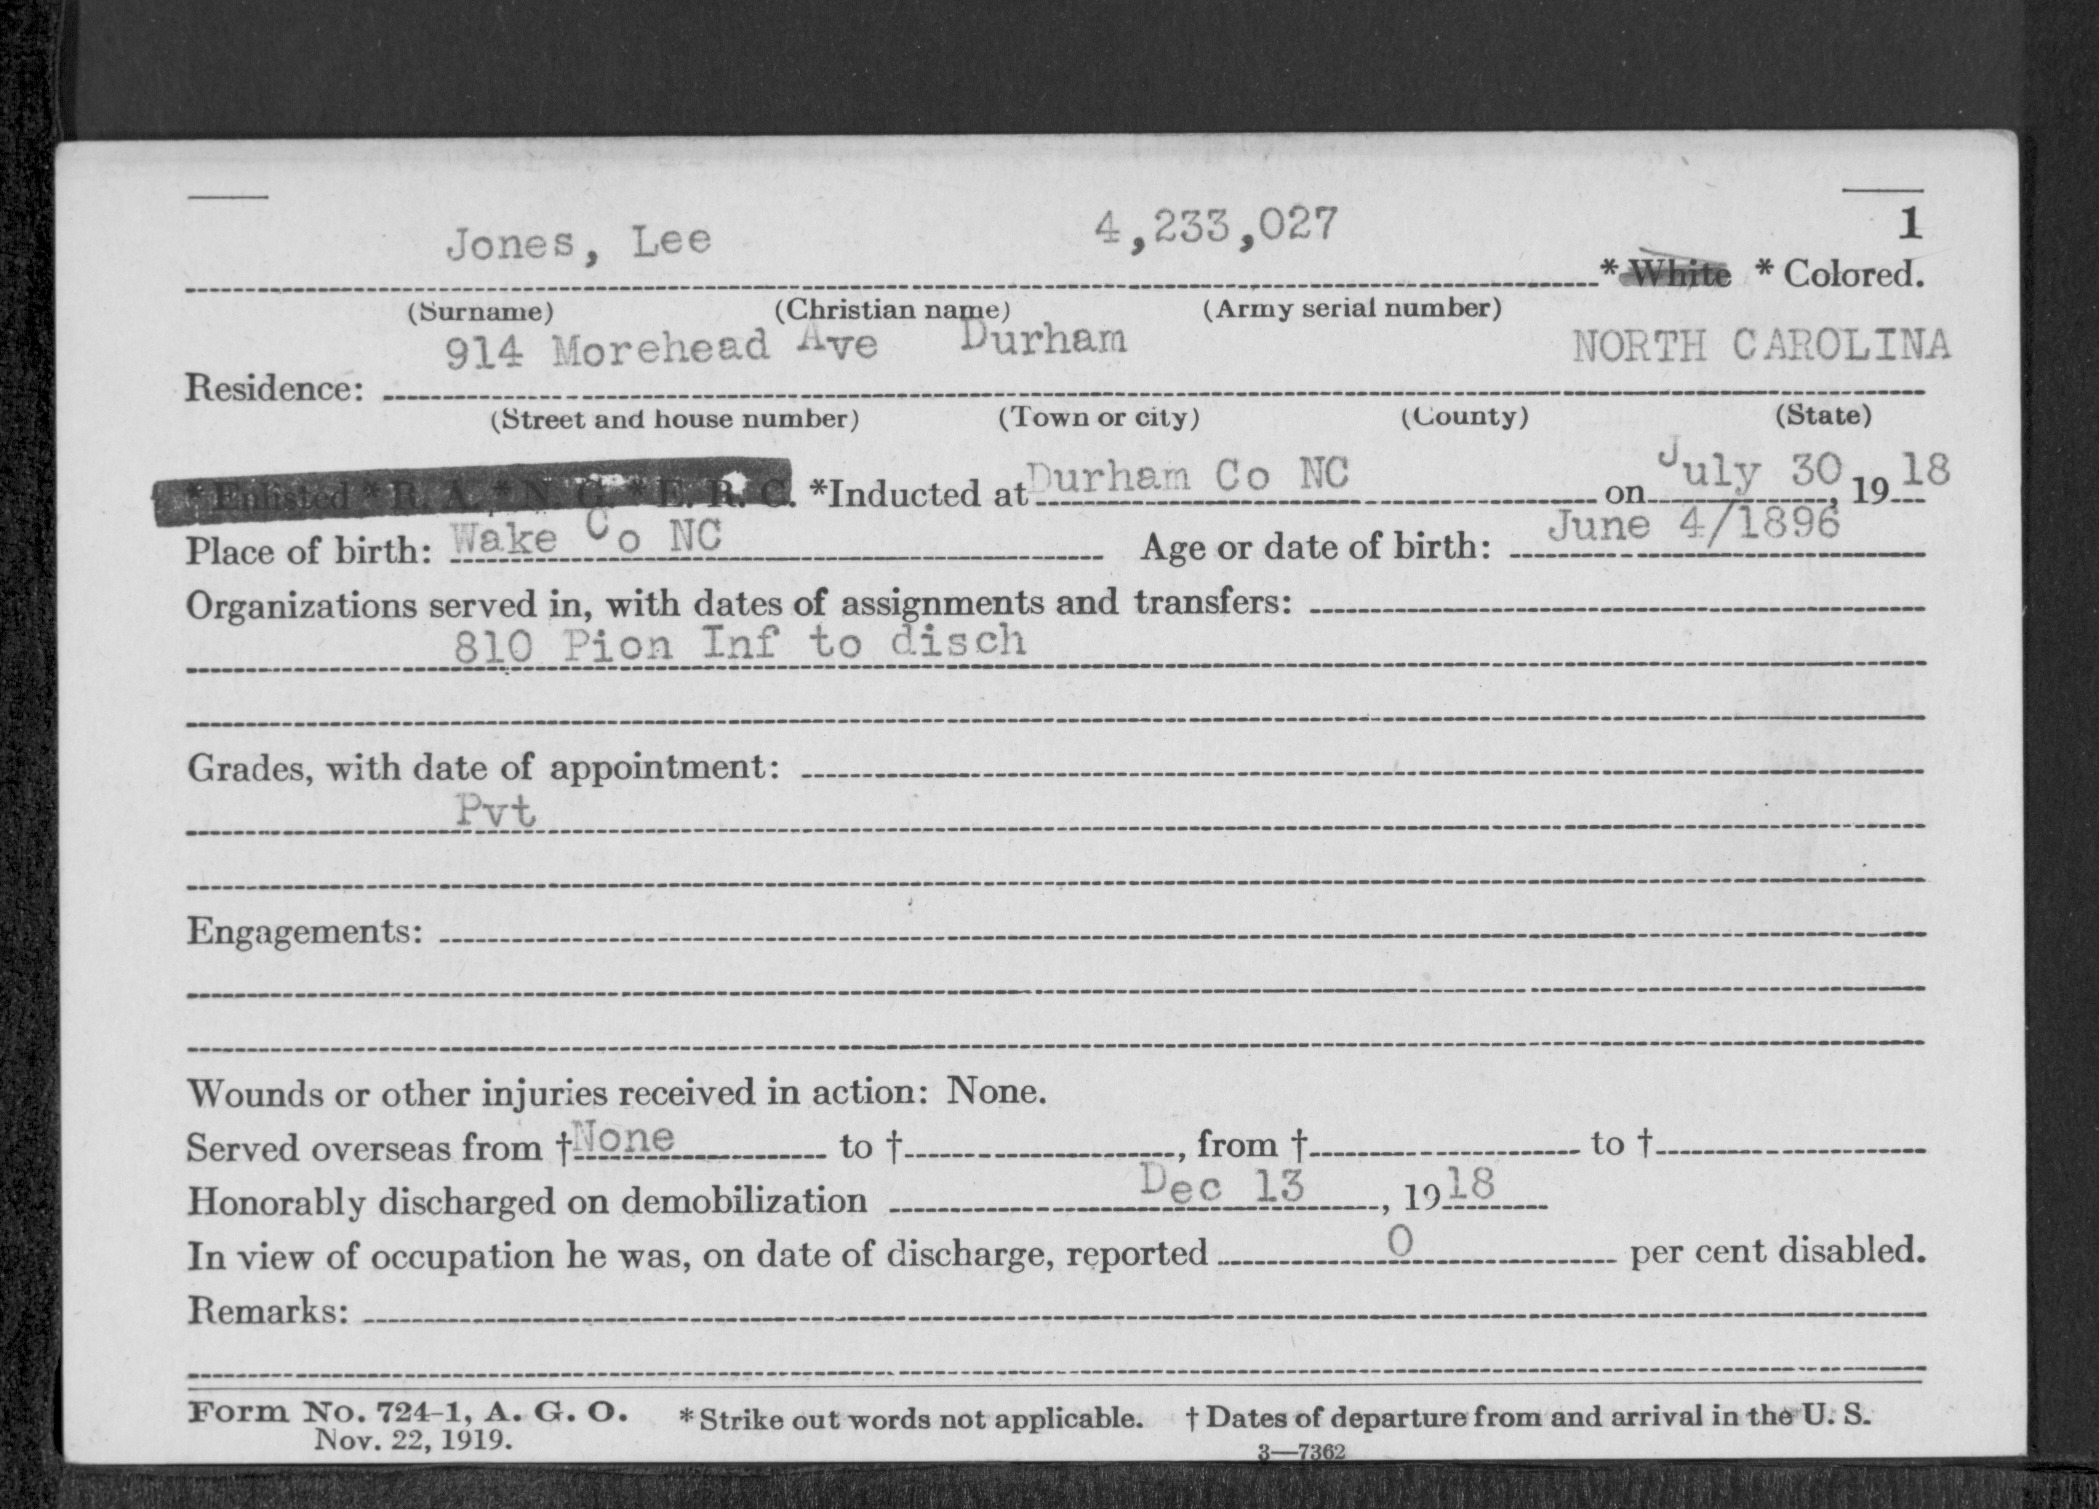 1
Jones, Lee 4,233,027 * White * Colored.
(Surname) (Christian name) (Army serial number)
914 Morehead Ave Durham NORTH CAROLINA
Residence:
(Street and house number) (Town or city) (County) (State)
* Enlisted * R. A. * N. G. * E. R. C. *Inducted at Durham Co NC on July 30, 1918
Place of birth: Wake Co NC Age or date of birth: June 4/1896
Organizations served in, with dates of assignments and transfers:
810 Pion Inf to disch
Grades, with date of appointment:
Pvt
Engagements:
Wounds or other injuries received in action: None.
Served overseas from † None to †, from † to †
Honorably discharged on demobilization Dec 13, 1918
In view of occupation he was, on date of discharge, reported 0 per cent disabled.
Remarks:
Form No. 724-1, A. G. O. * Strike out words not applicable. † Dates of departure from and arrival in the U. S.
Nov. 22, 1919. 3—7362